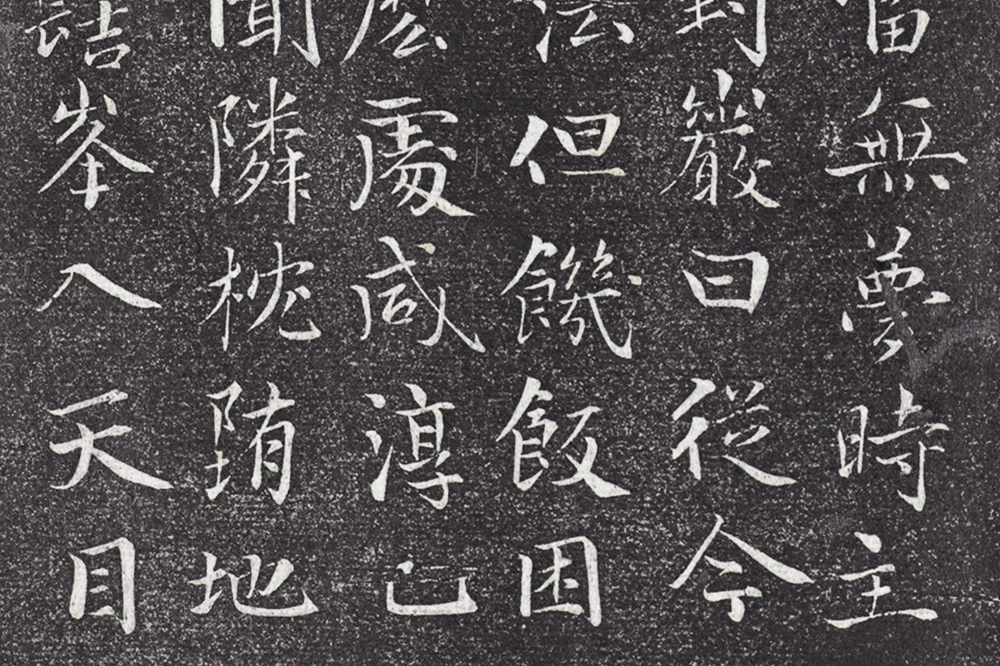 當無夢時主
對巖曰從今
法但饑飯困
麼處咸淳已
聞隣枕墮地
詰峯入天目